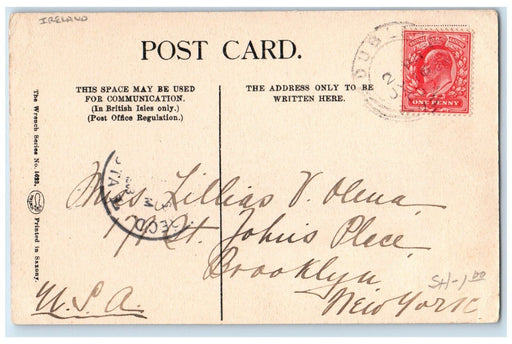 IRELAND
POST CARD.
THIS SPACE MAY BE USED
FOR COMMUNICATION.
(In British Isles only.)
(Post Office Regulation.)
THE ADDRESS ONLY TO BE
WRITTEN HERE.
DUBL
ONE PENNY
The Wrench Series No. Printed in Saxony.
REC'D.
STA
Miss Lillias V. Olena
St. Johns Place
Brooklyn
New York
U.S.A.
SH-1.00